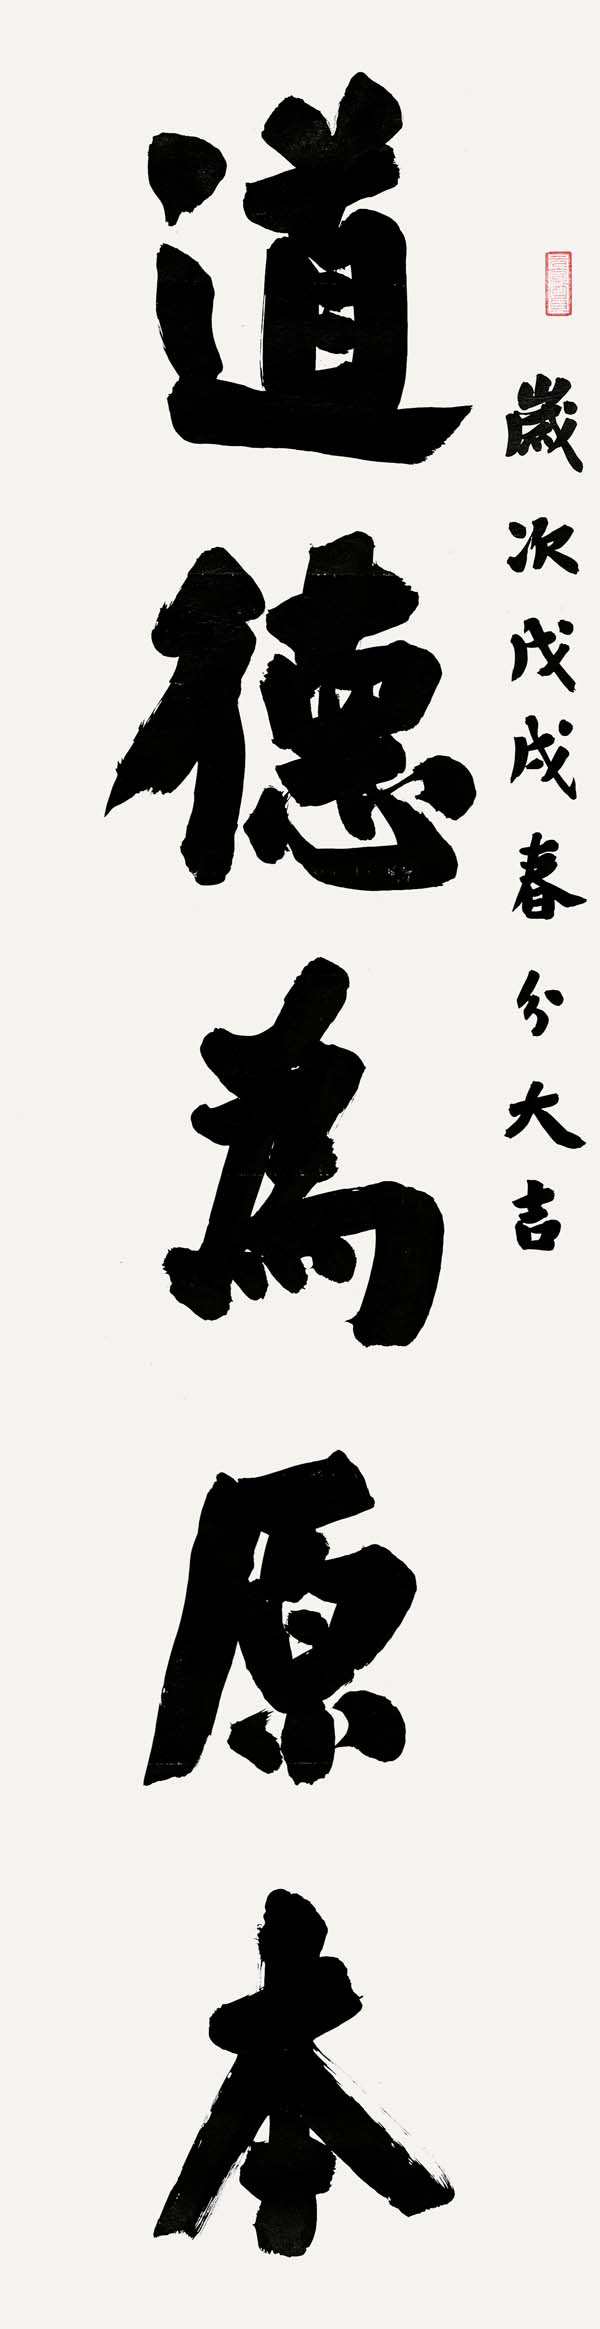 歲次戊戌春分大吉
道德為原本